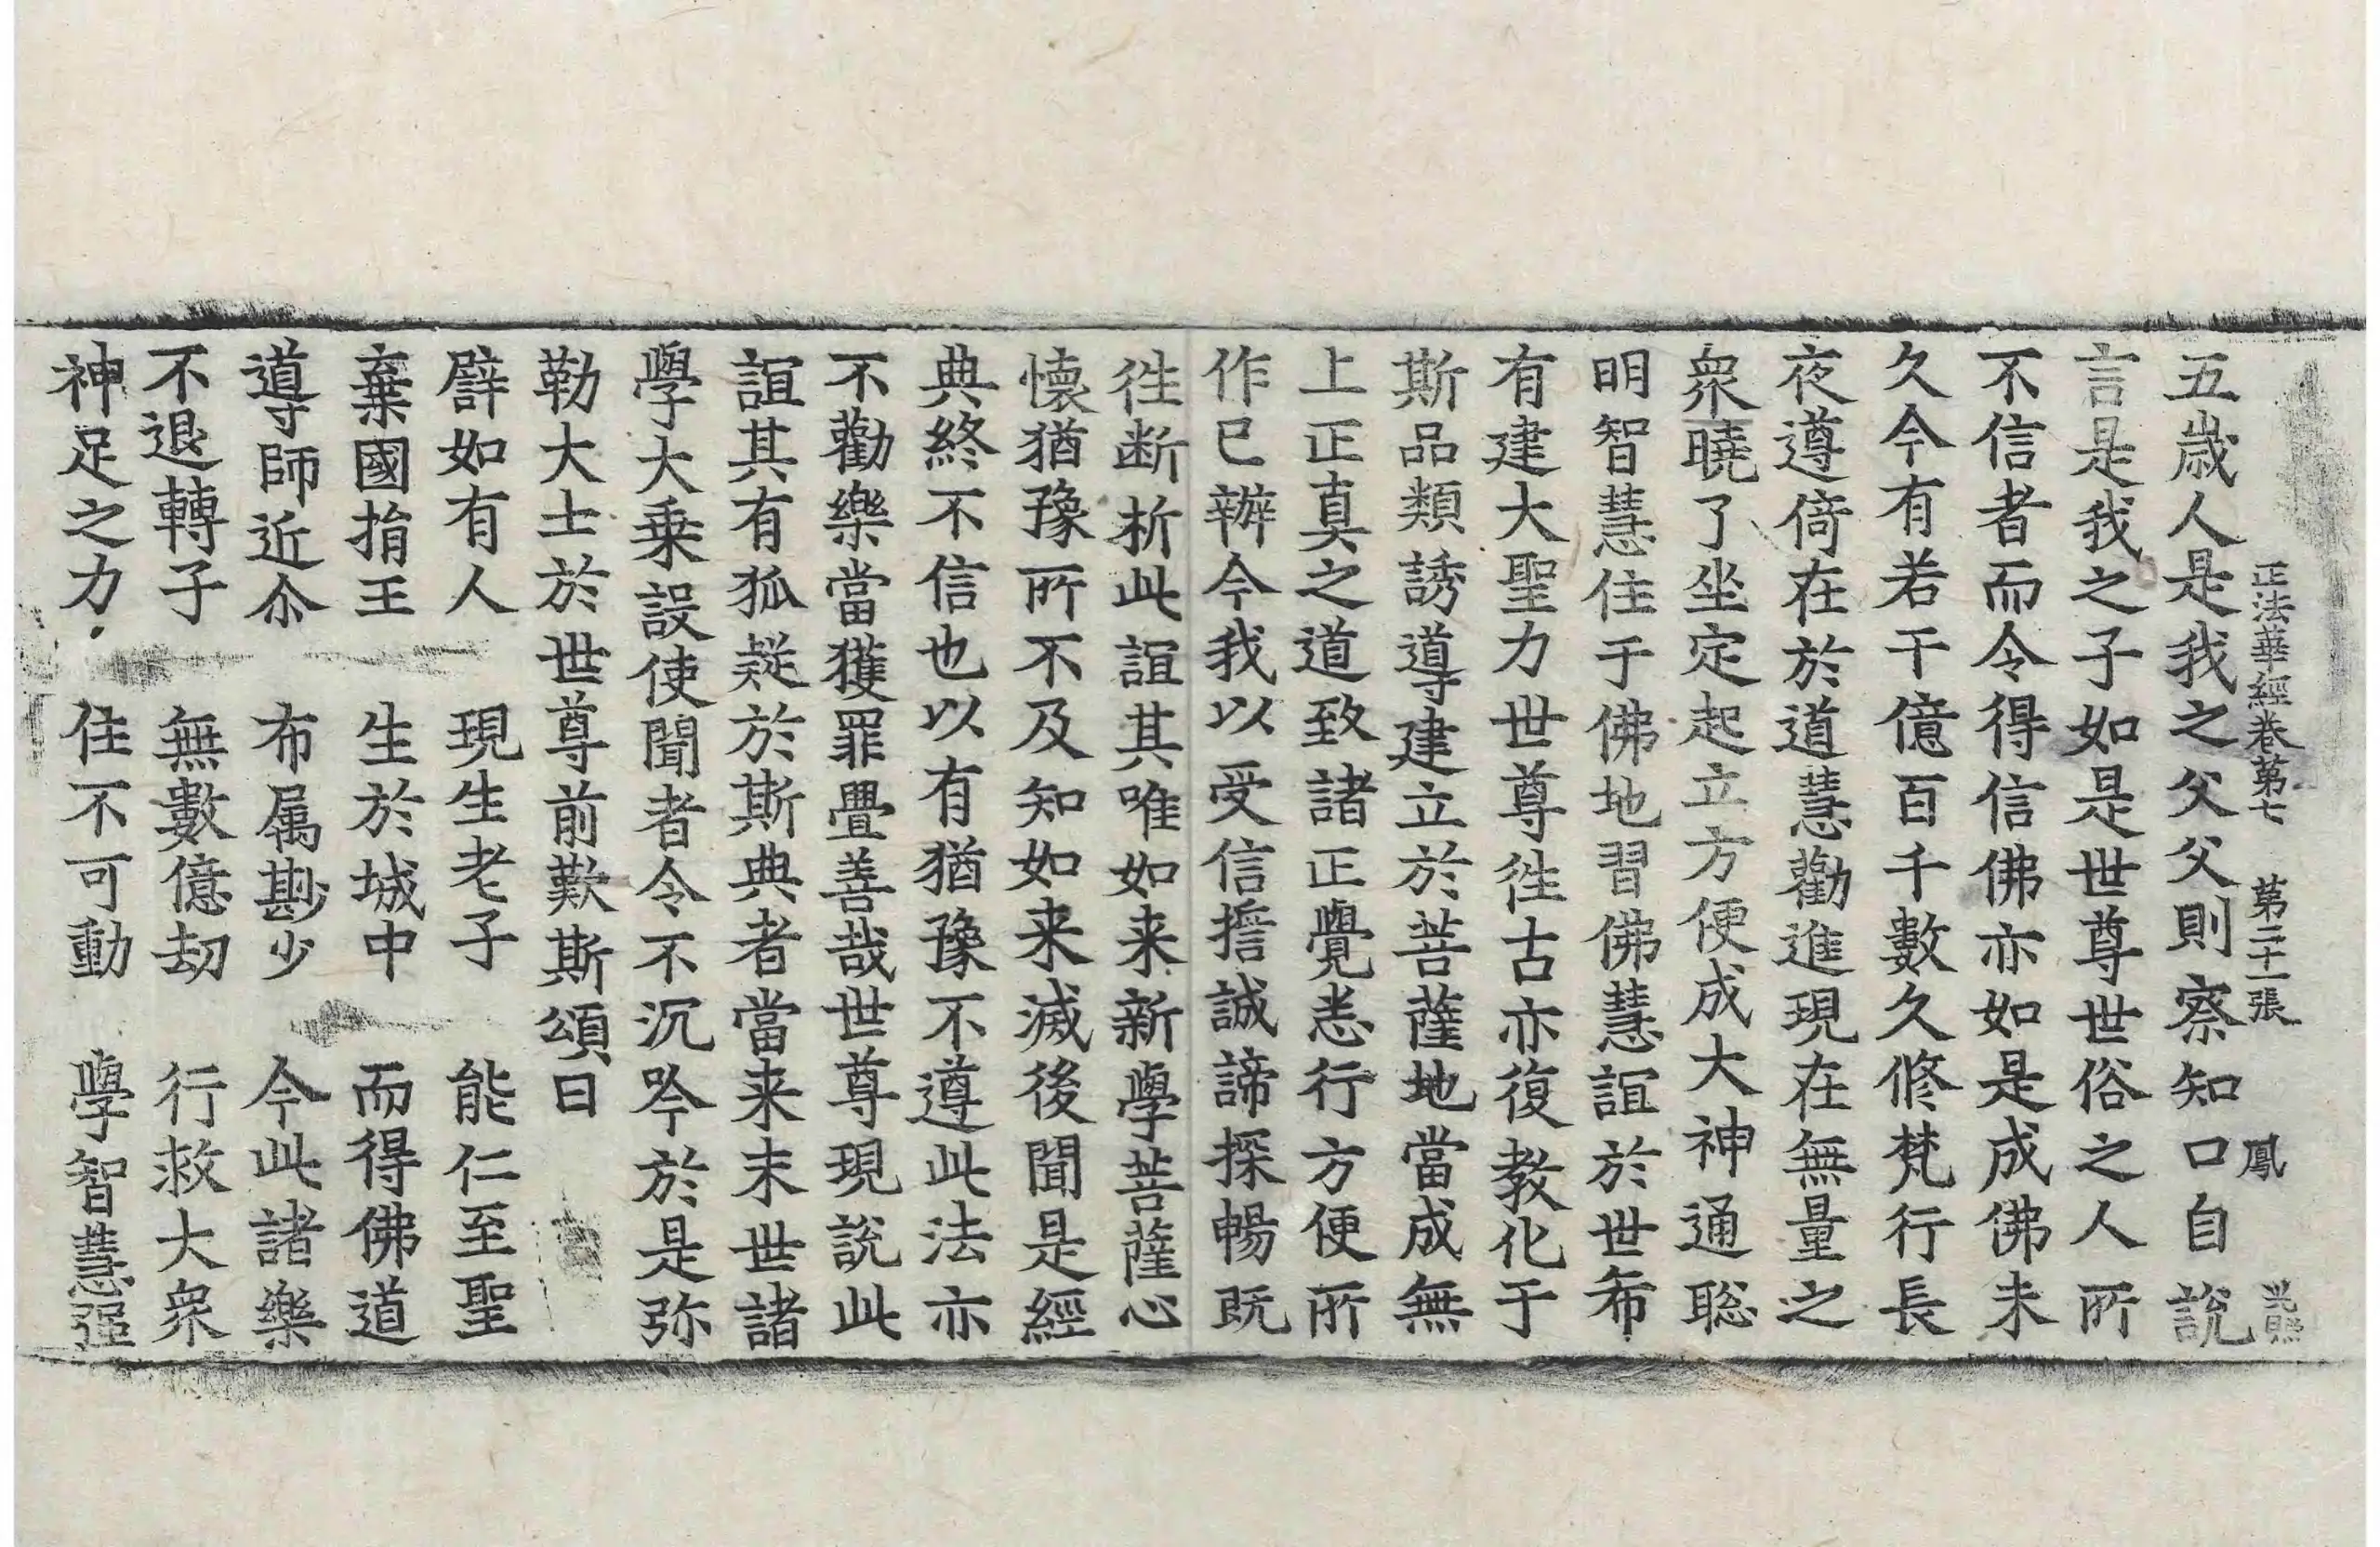 正法華經卷第七 第二十一張 鳳
五歲人是我之父父則察知口自說
言是我之子如是世尊世俗之人所
不信者而令得信佛亦如是成佛未
久今有若干億百千數久修梵行長
夜遵倚在於道慧勸進現在無量之
衆曉了坐定起立方便成大神通聡
明智慧住于佛地習佛慧誼於世希
有建大聖力世尊徃古亦復教化于
斯品類誘導建立於菩薩地當成無
上正真之道致諸正覺恙行方便所
作已辦今我以受信擔誠諦探暢既
徃断析此誼其唯如来新學菩薩心
懷猶豫所不及知如来滅後聞是經
典終不信也以有猶豫不遵此法亦
不勸樂當獲罪舋善哉世尊現說此
誼其有狐疑於斯典者當来末世諸
學大乗設使聞者令不沉吟於是弥
勒大士於世尊前歎斯頌曰
譬如有人 現生老子 能仁至聖
棄國捐王 生於城中 而得佛道
導師近尒 布属尠少 今此諸樂
不退轉子 無數億劫 行救大衆
神足之力 住不可動 學智慧强